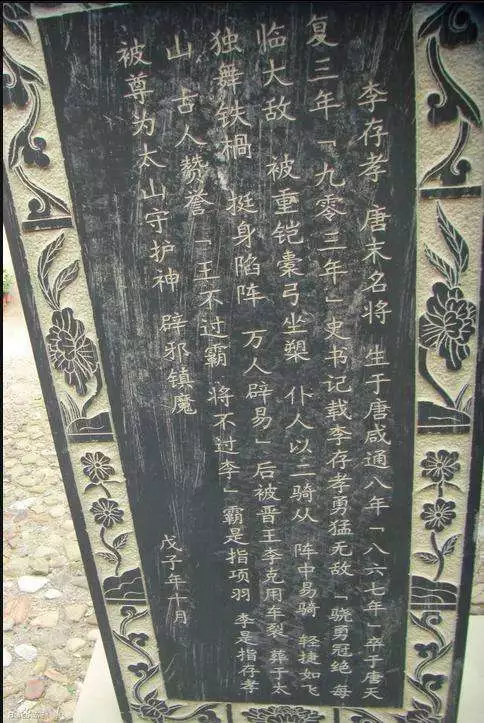 李存孝 唐末名将 生于唐咸通八年「八六七年」卒于唐天
复三年「九零三年」史书记载李存孝勇猛无敌「骁勇冠绝 每
临大敌 被重铠橐弓坐槊 仆人以二骑从 阵中易骑 轻捷如飞
独舞铁楇 挺身陷阵 万人辟易」后被晋王李克用车裂 葬于太
山 古人赞誉「王不过霸 将不过李」霸是指项羽 李是指存孝
被尊为太山守护神 辟邪镇魔
戊子年十月